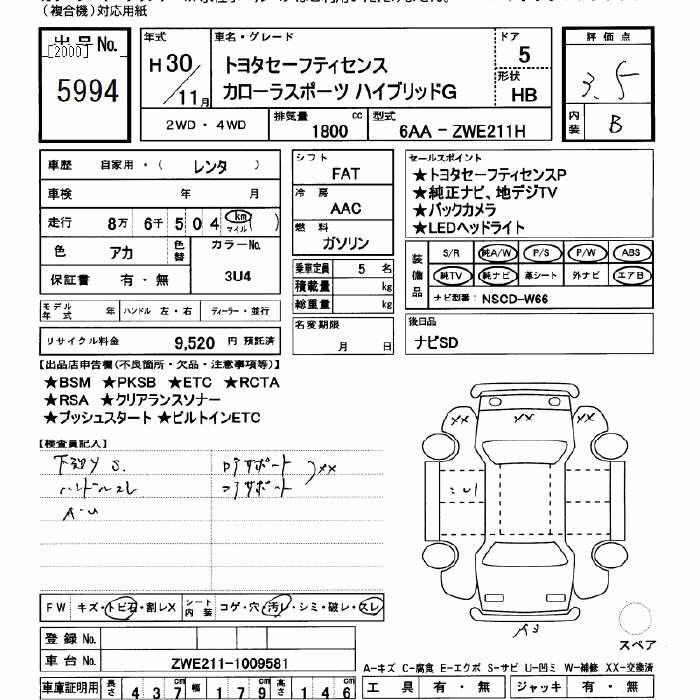 (複合機)対応用紙
出品No.
[2000]
5994
年式
H30/11月
車名・グレード
トヨタセーフティセンス
カローラスポーツ ハイブリッドG
ドア
5
形状
HB
評価点
3.5
内装
B
2WD・4WD
排気量
1800 cc
型式
6AA - ZWE211H
車歴 自家用・( レンタ )
車検 年 月
走行 8万 6千 5 0 4 km マイル ( )
色 アカ 色替 カラーNo.
3U4
保証書 有・無
モデル年式 年 ハンドル 左・右 ディーラー・並行
リサイクル料金 9,520 円 預託済
シフト
FAT
冷房
AAC
燃料
ガソリン
乗車定員 5 名
積載量 kg
総重量 kg
名変期限
月 日
セールスポイント
★トヨタセーフティセンスP
★純正ナビ、地デジTV
★バックカメラ
★LEDヘッドライト
装備品
S/R 純A/W P/S P/W ABS
純TV 純ナビ 革シート 外ナビ エアB
ナビ型番: NSCD-W66
後日品
ナビSD
【出品店申告欄(不良箇所・欠品・注意事項等)】
★BSM ★PKSB ★ETC ★RCTA
★RSA ★クリアランスソナー
★プッシュスタート ★ビルトインETC
【検査員記入】
下廻り S.
ハンドルスレ
A・U
XX
XX XX XX
FW キズ・トビ石・割レX
シート内装 コゲ・穴・汚レ・シミ・破レ・スレ
登録No.
車台No. ZWE211-1009581
車庫証明用 長さ 4 3 7 cm 幅 1 7 9 cm 高さ 1 4 6 cm
スペア
A-キズ C-腐食 E-エクボ S-サビ U-凹ミ W-補修 XX-交換済
工具 有・無 ジャッキ 有・無